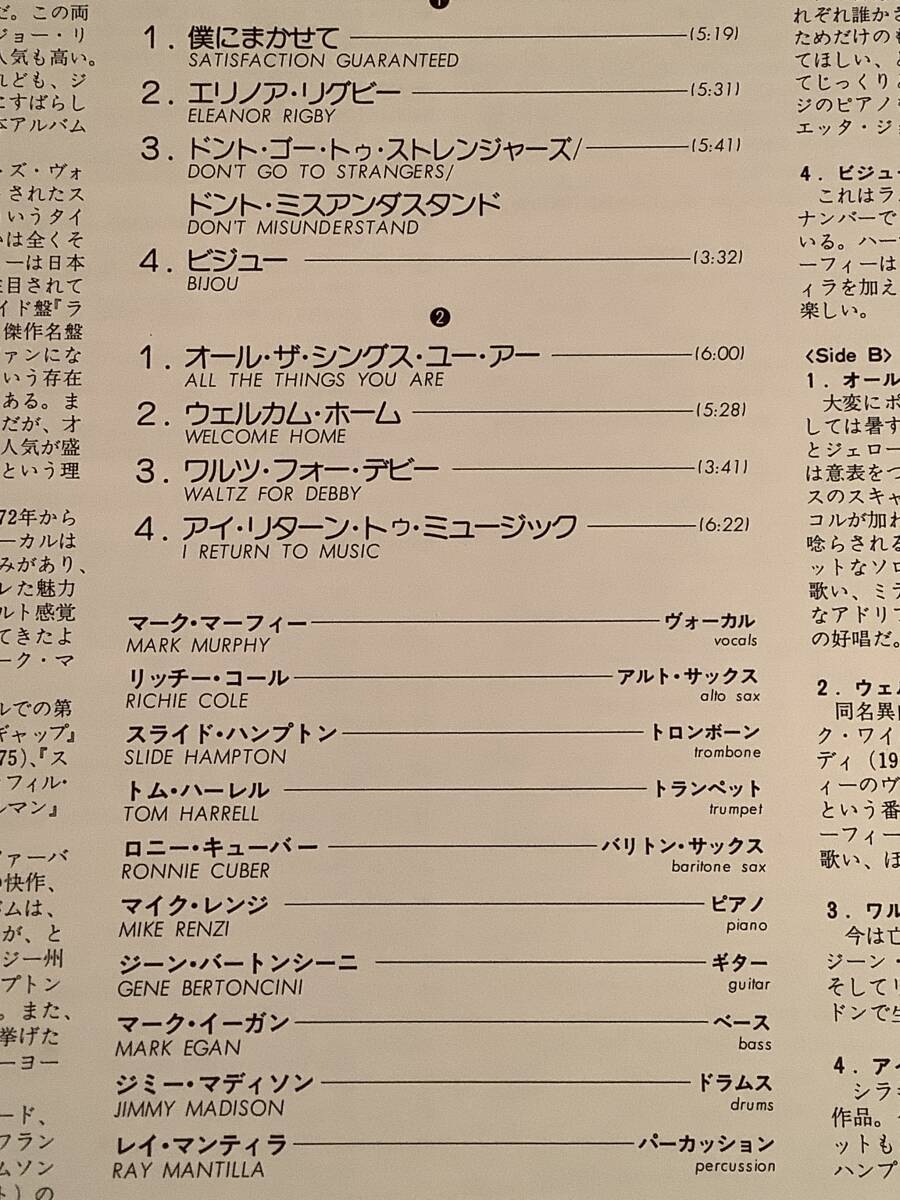 だ。この両
ジョー・リ
人気も高い。
れども、ジ
にすばらし
本アルバム
・ズ・ヴォ
されたス
というタイ
いは全くそ
ィーは日本
注目されて
イド盤『ラ
傑作名盤
ァンにな
いう存在
ある。ま
だが、オ
人気が盛
という理
72年から
ーカルは
みがあり、
レた魅力
ルト感覚
てきたよ
ーク・マ
ルでの第
ギャップ』
75)、『ス
・フィル・
ルマン』
ヴァーバ
の快作、
バムは、
が、と
ジー州
プトン
。また、
挙げた
ーヨー
ード、
フラン
ムソン
ト）の
❶
1. 僕にまかせて (5:19)
SATISFACTION GUARANTEED
2. エリノア・リグビー (5:31)
ELEANOR RIGBY
3. ドント・ゴー・トゥ・ストレンジャーズ/ (5:41)
DON'T GO TO STRANGERS/
ドント・ミスアンダスタンド
DON'T MISUNDERSTAND
4. ビジュー (3:32)
BIJOU
❷
1. オール・ザ・シングス・ユー・アー (6:00)
ALL THE THINGS YOU ARE
2. ウェルカム・ホーム (5:28)
WELCOME HOME
3. ワルツ・フォー・デビー (3:41)
WALTZ FOR DEBBY
4. アイ・リターン・トゥ・ミュージック (6:22)
I RETURN TO MUSIC
マーク・マーフィー ヴォーカル
MARK MURPHY vocals
リッチー・コール アルト・サックス
RICHIE COLE alto sax
スライド・ハンプトン トロンボーン
SLIDE HAMPTON trombone
トム・ハーレル トランペット
TOM HARRELL trumpet
ロニー・キューバー バリトン・サックス
RONNIE CUBER baritone sax
マイク・レンジ ピアノ
MIKE RENZI piano
ジーン・バートンシーニ ギター
GENE BERTONCINI guitar
マーク・イーガン ベース
MARK EGAN bass
ジミー・マディソン ドラムス
JIMMY MADISON drums
レイ・マンティラ パーカッション
RAY MANTILLA percussion
れぞれ誰かさ
ためだけのも
てほしい、と
てじっくりと
ジのピアノ
エッタ・ジョ
4. ビジュー
これはラ
ナンバーで
いる。ハー
ーフィーは
ィラを加え
楽しい。
〈Side B〉
1. オール
大変にポ
しては暑す
とジェロー
は意表をつ
スのスキャ
コルが加わ
唸らされる
ットなソロ
歌い、ミデ
なアドリブ
の好唱だ。
2. ウェル
同名異曲
ク・ワイ
ディ（19
ィーのヴ
という番
ーフィー
歌い、ほ
3. ワル
今は亡
ジーン・
そしてリ
ドンで生
4. アイ
シラキ
作品。
ットも
ハンプ